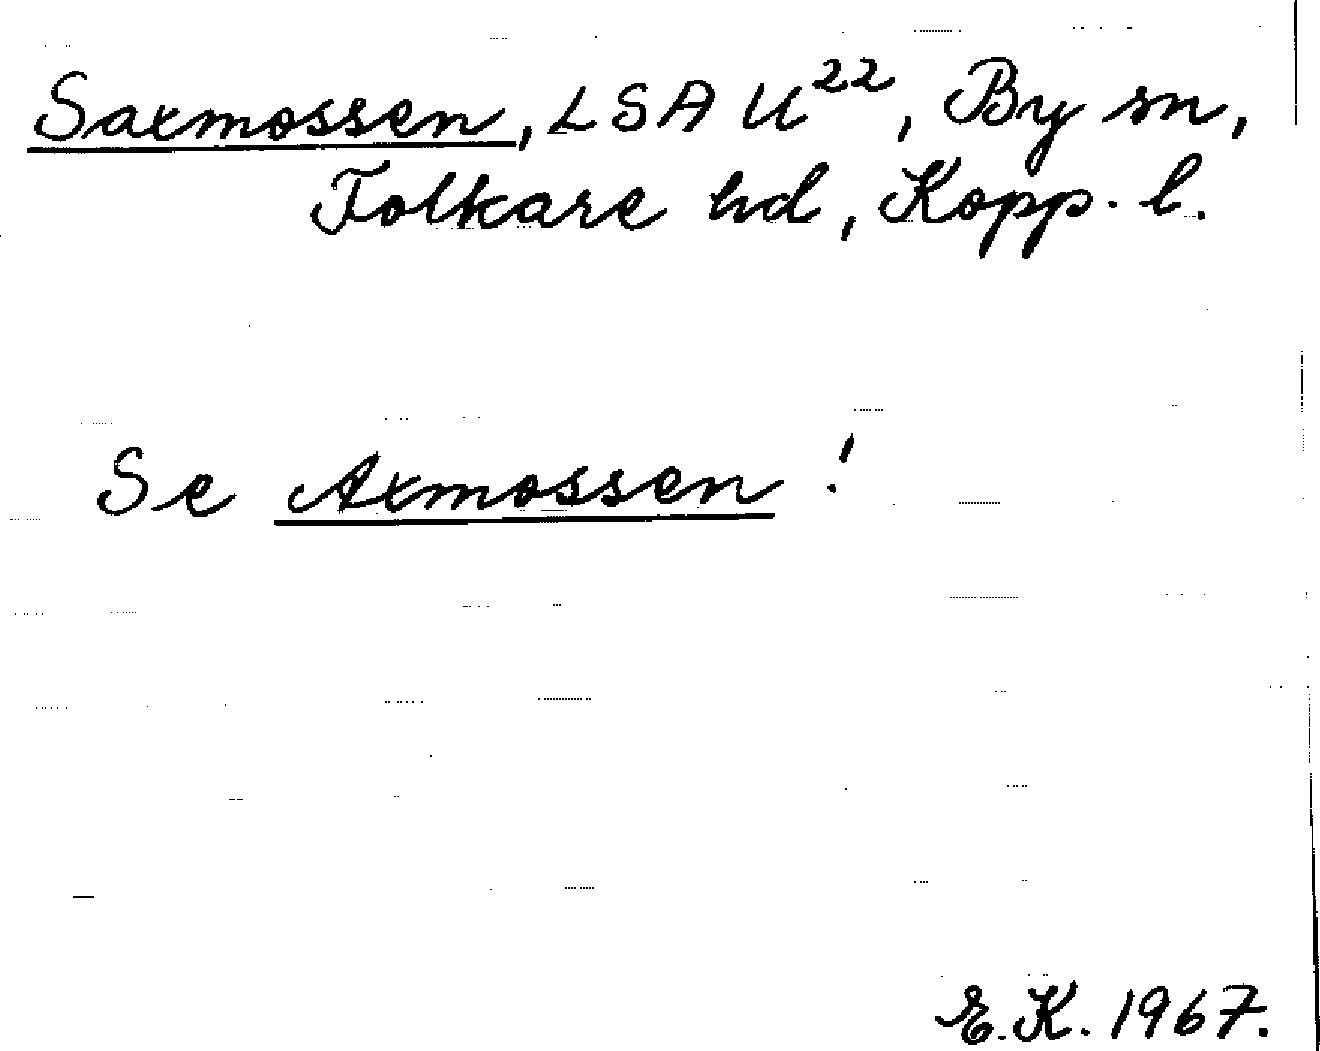 Saxmossen, LSA U²², By sn,
Folkare hd, Kopp. l.
Se Axmossen!
E.K. 1967.